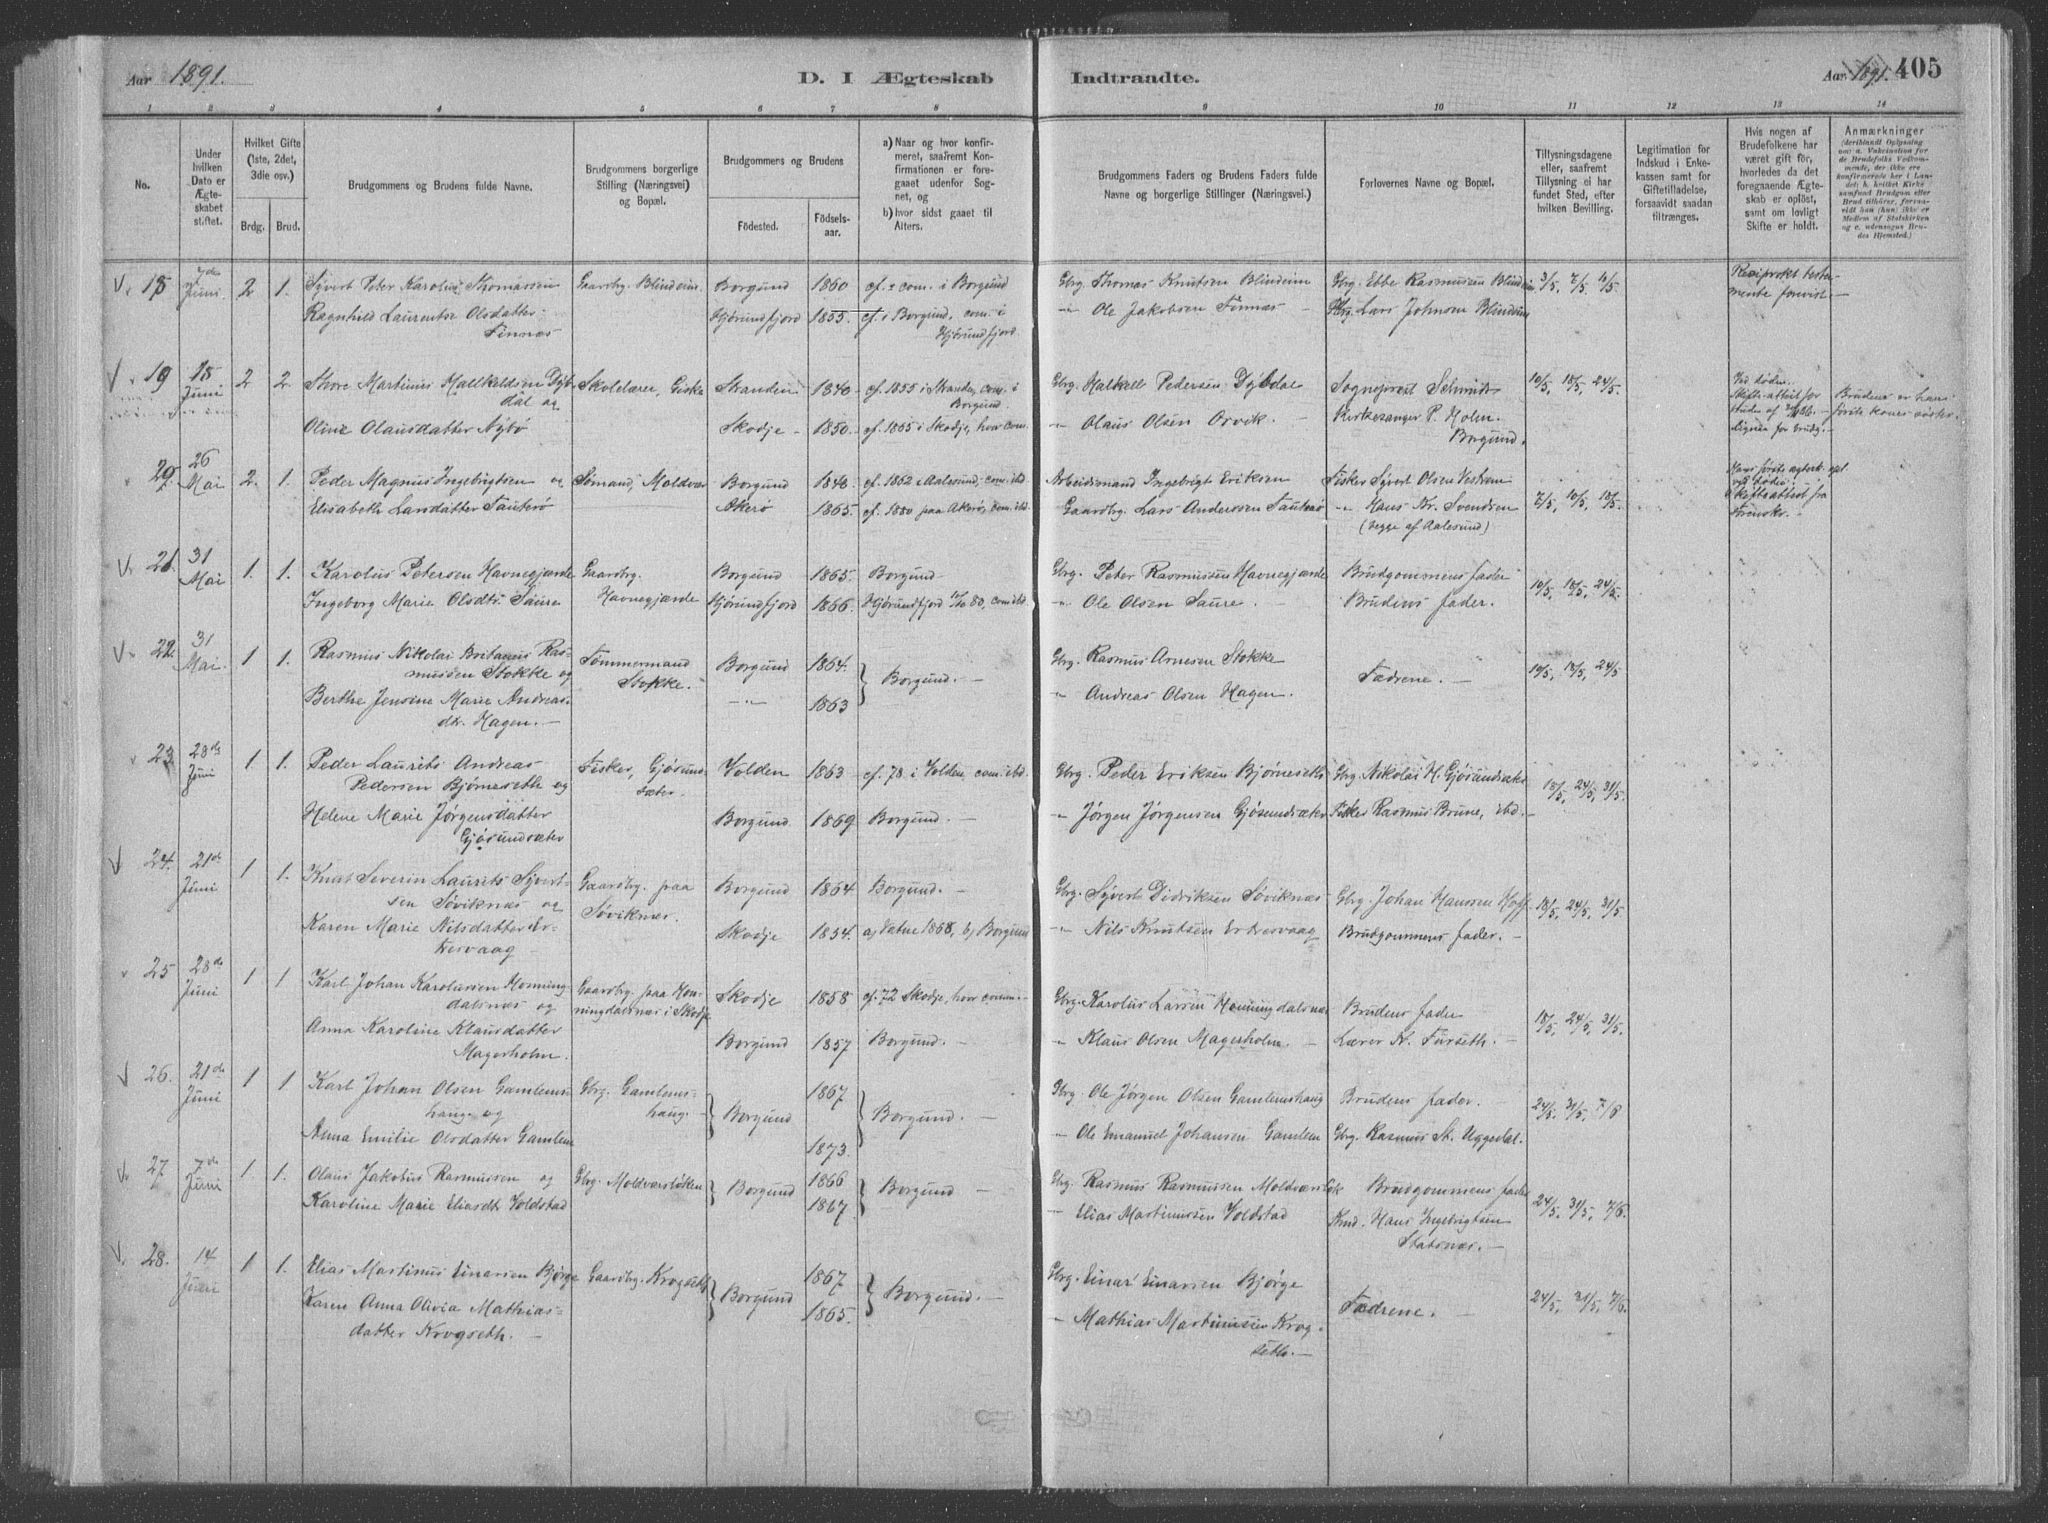 Aar 1891.
D. I Ægteskab
Indtrandte.
Aar 1891. 405
1 2 3 4 5 6 7 8 9 10 11 12 13 14
No.
Under hvilken Dato er Ægteskabet stiftet.
Hvilket Gifte (1ste, 2det, 3die osv.)
Brdg. Brud.
Brudgommens og Brudens fulde Navne.
Brudgommens borgerlige Stilling (Næringsvei) og Bopæl.
Brudgommens og Brudens
Födested. Födsels-aar.
a) Naar og hvor konfirmeret, saafremt Konfirmationen er foregaaet udenfor Sognet, og
b) hvor sidst gaaet til Alters.
Brudgommens Faders og Brudens Faders fulde Navne og borgerlige Stillinger (Næringsvei.)
Forlovernes Navne og Bopæl.
Tillysningsdagene eller, saafremt Tillysning ei har fundet Sted, efter hvilken Bevilling.
Legitimation for Indskud i Enkekassen samt for Giftetilladelse, forsaavidt saadan tiltrænges.
Hvis nogen af Brudefolkene har været gift för, hvorledes da det foregaaende Ægteskab er oplöst, samt om lovligt Skifte er holdt.
Anmærkninger
18 7de Juni 2 1. Sjvert Peter Karolius Thomassen Gaardbg. Blindeim. Borgund 1860 cf. + com. i Borgund Gbrg. Thomas Knutsen Blindeim Gbrg. Ebbe Rasmussen Blindeim 3/5, 7/5, 10/5.
Ragnhild Laurentse Olsdatter Finnæs Hjørundfjord 1855. cf. i Borgund, com. i Hjørundfjord. " Ole Jakobsen Finnæs Gbrg. Lars Johnsen Blindeim
19 15 Juni 2 2. Thore Martinus Hallkeldsen Dybdal og Skolelærer, Giske Stranden 1840 cf. 1855 i Stranden, com. i Borgund. Gbrg. Halkell Pedersen Dybdal Sogneprest Schmidt 10/5, 18/5, 24/5.
Oline Olausdatter Nybø Skodje 1850. cf. 1865 i Skodje, hvor com. " Olaus Olsen Orvik. Kirkesanger P. Holm. Borgund.
Bruden er hans første kones søster.
20. 26 Mai 2. 1. Peder Magnus Ingebrigtsen og Sømand, Moldvær Borgund 1840. cf. 1862 i Aalesund, com. ibd. Arbeidsmand Ingebrigt Eriksen Fisker Sjvert Olsen Vestrem
Elisabeth Larsdatter Tauterø Akerø 1865. cf. 1880 paa Akerø, com. ibd. Gaardbg. Lars Anderssen Tauterø " Hans Kr. Svendsen 7/5, 10/5, 18/5.
(begge af Aalesund)
21. 31 Mai 1. 1. Karolus Petersen Havnegjærde Gaardbg. Havnegjærde Borgund 1865. Borgund Gbrg. Peter Rasmussen Havnegjærde Brudgommens fader 10/5, 18/5, 24/5.
Ingeborg Marie Olsdtr. Saure Hjørundfjord 1866. Hjørundfjord 80, com. ibd. " Ole Olsen Saure. Brudens fader.
22. 31 Mai 1 1. Rasmus Nikolai Britanus Rasmussen Stokke og Tømmermand Stokke. Borgund 1864. Borgund. Gbrg. Rasmus Arnesen Stokke Fædrene. 10/5, 18/5, 24/5
Berthe Jensine Marie Andreasdtr. Hagen. " 1863 " Andreas Olsen Hagen.
23. 28de Juni 1 1. Peder Laurits Andreas Pedersen Bjørneseth og Fisker, Gjøsundsæter. Volden 1863 cf. 78 i Volden, com. ibd. Gbrg. Peder Eriksen Bjørneseth Gbrg. Nikolai H. Gjøsundsæter 18/5, 24/5, 31/5.
Helene Marie Jørgensdatter Gjøsundsæter Borgund. 1869 Borgund. " Jørgen Jørgensen Gjøsundsæter Fisker Rasmus Brune, ibd.
24. 21de Juni 1 1. Knut Severin Laurits Sjvertsen Søviknæs og Gaardbg. paa Søviknæs. Borgund 1864 Borgund. Gbrg. Sjvert Didriksen Søviknæs Gbrg. Johan Hanssen Hoff 18/5, 24/5, 31/5
Karen Marie Nilsdatter Ertesvaag Skodje 1854. a) Vatne 1868, b) Borgund " Nils Knutsen Ertesvaag Brudgommens fader.
25 28de Juni 1 1 Karl Johan Karolusen Honningdalsnæs og Gaardbg. paa Honningdalsnæs i Skodje Skodje 1858 cf. 72 Skodje, hvor comm. Gbrg. Karolus Larsen Honningdalsnæs Brudens fader 18/5, 24/5, 31/5.
Anna Karoline Klausdatter Magerholm. Borgund 1857 Borgund. " Klaus Olsen Magerholm. Lærer N. Furseth.
26. 21de Juni 1 1 Karl Johan Olsen Gamlemshaug og Gbrg. Gamlemshaug. Borgund 1867 Borgund. Gbrg. Ole Jørgen Olsen Gamlemshaug Brudens fader. 24/5. 31/5, 7/6
Anna Emilie Olsdatter Gamlem 1873. " Ole Emanuel Johansen Gamlem Gbrg. Rasmus St. Uggedal.
27 7de Juni 1. 1. Olaus Jakobus Rasmussen og Gbrg. Moldværsløken Borgund 1866 Borgund Gbrg. Rasmus Rasmussen Moldværsløk Brudgommens fader 24/5. 31/5, 7/6.
Karoline Marie Eliasdtr Voldstad 1867. " Elias Martinussen Voldstad Knud. Hans Ingebrigtsen Statsnæs.
28. 14 Juni 1 1. Elias Martinus Einarsen Bjørge Gaardbg. Krogseth Borgund 1867 Borgund. Gbrg. Einar Einarsen Bjørge Fædrene. 24/5, 31/5, 7/6.
Karen Anna Olivia Mathiasdatter Krogseth. 1865. " Mathias Martinussen Krogseth.